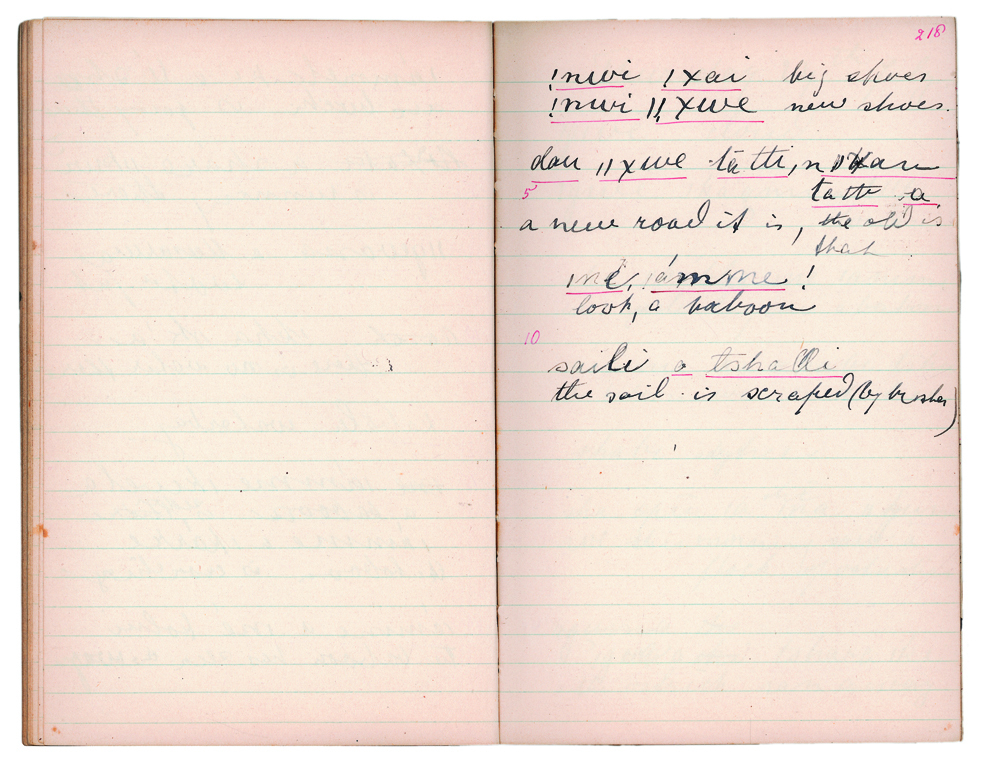 218
!nwi ǀxai big shoes
!nwi ǁxwe new shoes.
dau ǁxwe ta tti, n
5 tatti a
a new road it is, the old is
that
ǀne, !
look, a baboon
10
saili a
the soil is scraped (by brushes)